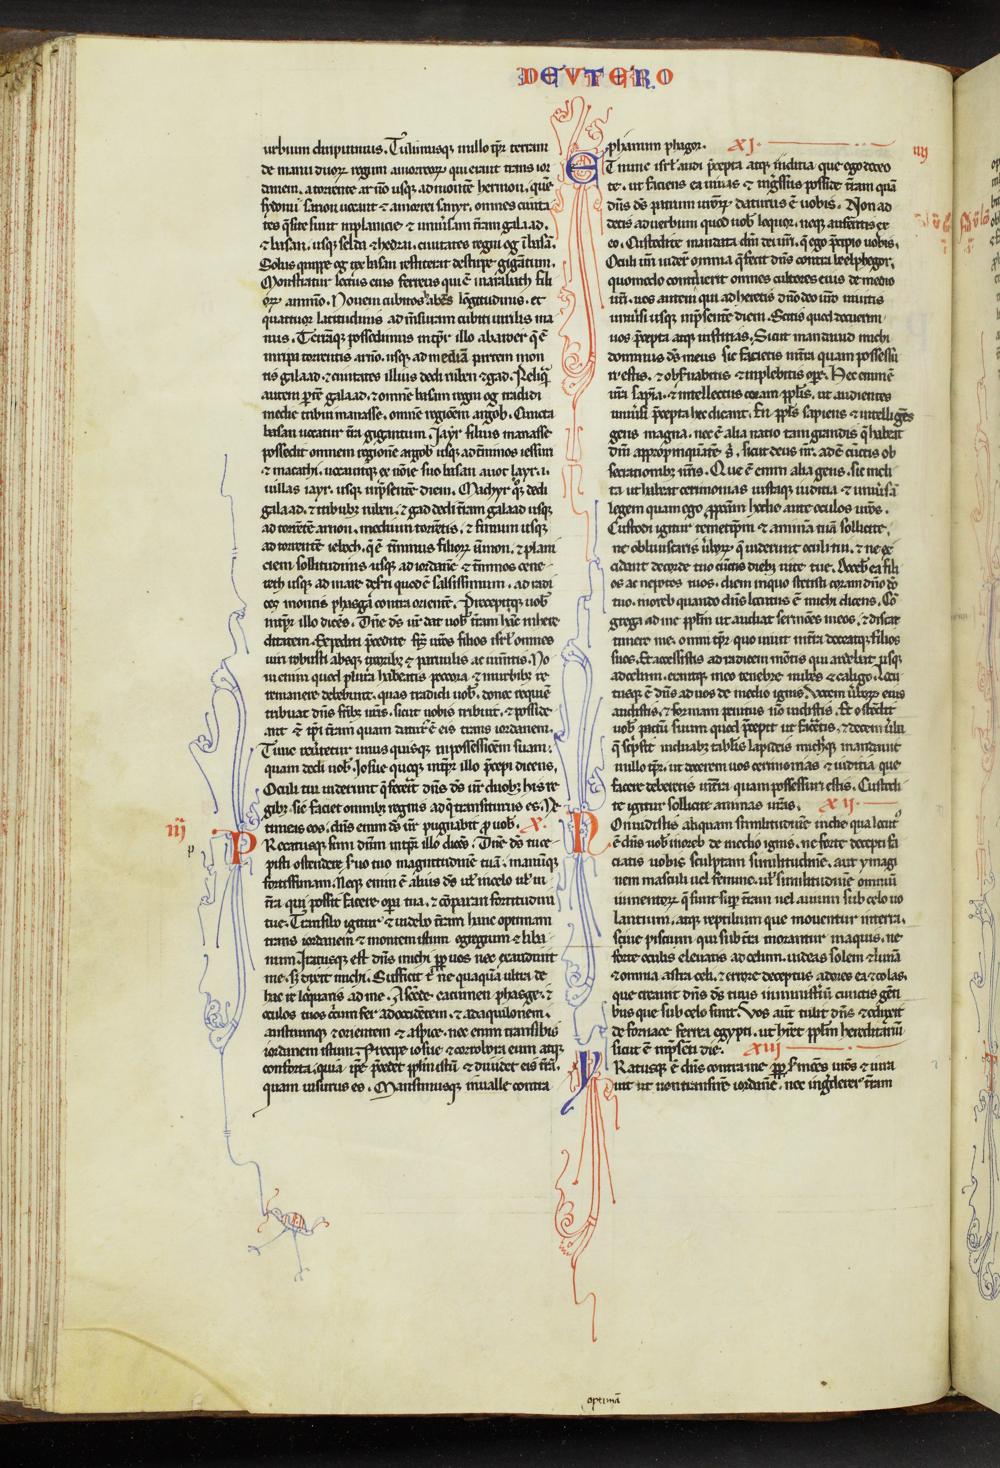 DEUTERO
urbium diripuimus. Tulimusq; illo tp̄r terram
de manu duoꝝ regum amorreoꝝ qui erant trans ior
danem. a torrente arnō usq; ad montē hermon. quē
sydonii sarion uocant & amorrei sanyr. omnes ciuita
tes q̄ site sunt in planicie & uniu̓sam t̄ram galaad.
& basan. usq; selcha & hedrai. ciuitates regni og ī basā.
Solus quippe og rex basan restiterat de stirpe gigātum.
Monstratur lectus eius ferreus qui ē in rabbath fili
oꝝ ammō. Nouem cubitos habēs lōgitudinis. et
quattuor latitudinis ad m̄suram cubiti uirilis ma
nus. Terrāq; possedimus in tp̄r illo ab aroer q̄ ē
sup ripā torrentis arnō. usq; ad mediā partem mon
tis galaad. & ciuitates illius dedi ruben & gad. Reliq̄
autem partē galaad. & omnē basan regni og tradidi
medie tribui manasse. omnē regionem argob. Cuncta
basan uocatur t̄ra gigantum. Jayr filius manasse
possedit omnem regionē argob usq; ad t̄minos iessuri
& machati. uocauitq; ex noīe suo basan auot iayr. i.
uillas iayr. usq; in p̄sentē diem. Machyr q̊q; dedi
galaad. & tribubꝫ ruben. & gad dedi t̄ram galaad usq;
ad torrētē arnon. medium torrētis. & finium usq;
ad torrentē ieboch. q̄ ē t̄minus filioꝝ āmon. & plani
ciem solitudinis usq; ad iordanē & t̄minos cene
reth usq; ad mare deserti quod ē salsissimum. ad radi
ces montis phasga contra orientē. Precepitq; uob̓
in tp̄r illo dicēs. Dn̄s ds̄ ur̄ dat uob̓ t̄ram hāc in here
ditatem. Expediti p̄cedite fr̄s ur̄os filios isrl̓ omnes
uiri robusti absq; uxoribꝫ & paruulis ac iumtis. No
ui enim quod plura habeatis peccora & in urbibꝫ re
remanere debebunt. quas tradidi uob̓. donec requiē
tribuat dn̄s fr̄ibꝫ ur̄is. sicut uobis tribuit. & posside
ant & ip̄i t̄ram quam daturꝰ ē eis trans iordanem.
Tunc reu̓tetur unus quisque in possessionem suam.
quam dedi uob̓. Iosue quoq; in tp̄r illo p̄cepi dicens.
Oculi tui uiderunt q̄ fecerit dn̄s ds̄ ur̄ duobꝫ his re
gibꝫ. sic faciet omnibꝫ regnis ad q̄ transiturus es. Ne
timeas eos. dn̄s enim ds̄ ur̄ pugnabit ꝓ uob̓. X.
iij
Precatusq; sum dn̄m in tp̄r illo dicēs. Dn̄e ds̄ tu ce
pisti ostendere s̓uo tuo magnitudinē tuā. manūq;
fortissimam. Neq; enim ē alius ds̄ uel in celo uel in
t̄ra qui possit facere opera tua. & cōparari fortitudini
tue. Transibo igitur & uidebo t̄ram hanc optimam
trans iordanem & montem istum egregium & liba
num. Iratusq; est dn̄s michi ꝓp uos nec exaudiuit
me. s; dixit michi. Sufficit t̄ ne quaquā ultra de
hac re loq̄ris ad me. Ascēde cacumen phasge. &
oculos tuos circūfer ad occidētem. & ad aquilonem.
austrumq; & orientem & aspice. nec enim transibis
iordanem istum. Precipe iosue & corrobora eum atq;
conforta. quia ip̄e p̄cedet ppl̄m istū & diuidet eis t̄rā.
quam uisurus es. Mansimusq; in ualle contra
phanum phagor. XI.
iiij
Et nunc isrl̓ audi p̄cepta atq; iudicia que ego doceo
te. ut faciens ea uiuas & īgressus posside t̄ram quā
dn̄s ds̄ patrum ur̄oꝝ daturus ē uobis. Non ad
detis ad uerbum quod uob̓ loquor. neq; auferetis ex
eo. Custodite mandata dn̄i dei ur̄i. q̄ ego p̄cipio uobis.
Oculi ur̄i uider̄ omnia q̄ fecit dn̄s contra beelphegor.
quomodo contriuerit omnes cultores eius de medio
ur̄i. uos autem qui adheretis dn̄o deo ur̄o uiuitis
uniu̓si usq; in p̄sentē diem. Scitis quod docuerim
uos p̄cepta atq; iusticias. Sicut mandauit michi
dominus ds̄ meus sic facietis in t̄ra quam possessu
ri estis. & obseruabitis & implebitis ope. Hec enim ē
ur̄a sapiētia. & intellectus coram ppl̄is. ut audientes
uniu̓si p̄cepta hec dicant. En ppl̄s sapiens & intelligēs
gens magna. nec ē alia natio tam grandis q̄ habeat
deos appropinquātes s̓. sicut deus nr̄. adē cūctis ob
secrationibꝫ nr̄is. Que ē enim alia gens. sic incli
ta ut habeat cerimonias iustaq; iudicia & uniu̓sā
legem quam ego ꝓponam hodie ante oculos ur̄os.
Custodi igitur temetip̄m & animā tuā sollicite.
ne obliuiscaris uerboꝝ q̄ uiderunt oculi tui. & ne ex
cidant de corde tuo cūctis diebꝫ uite tue. Doceb̓ ea fili
os ac nepotes tuos. diem in quo stetisti coram dn̄o do
tuo. in oreb quando dn̄s locutus ē michi dicens. Cō
grega ad me ppl̄m ut audiat sermōes meos. & discat
timere me. omni tp̄r quo uiuit in t̄ra doceatq; filios
suos. Et accessistis ad radicem mōtis qui ardebat usq;
ad celum. erantq; in eo tenebre nubes & caligo. Locu
tusq; ē dn̄s ad uos de medio ignis. Vocem uerboꝝ eius
audistis. & formam penitus nō uidistis. Et ostēdit
uob̓ pactū suum quod p̄cepit ut facētis. & decem uerba
q̄ sc̄psit in duabꝫ tablis lapideis michiq; mandauit
in illo tp̄r. ut docerem uos cerimonias & iudicia que
facere deberetis in t̄ra quam possessuri estis. Custodi
te igitur sollicite animas ur̄as. XII.
Non uidistis aliquam similitudinē in die qua locutꝰ
ē dn̄s uob̓ in oreb de medio ignis. ne forte decepti fa
ciatis uobis sculptam similitudinē. aut ymagi
nem masculi uel femine. uel similitudinē omniū
iumentoꝝ q̄ sunt sup t̄ram uel auium sub celo uo
lantium. atque reptilium que mouentur in terra.
siue piscium qui sub t̄ra morantur in aquis. ne
forte oculis eleuatis ad celum. uideas solem & lunā
& omnia astra celi. & errore deceptus adores ea & colas.
que creauit dn̄s ds̄ tuus in ministriū cunctis gēti
bus que sub celo sunt. Vos aūt tulit dn̄s & eduxit
de fornace ferrea egypti. ut h̄ret ppl̄m hereditariū
sicut ē in p̄senti die. XIII
Iratusq; ē dn̄s contra me ꝓp s̓mōes ur̄os & iura
uit ut non transirē iordanē. nec ingrederer t̄ram
optimā